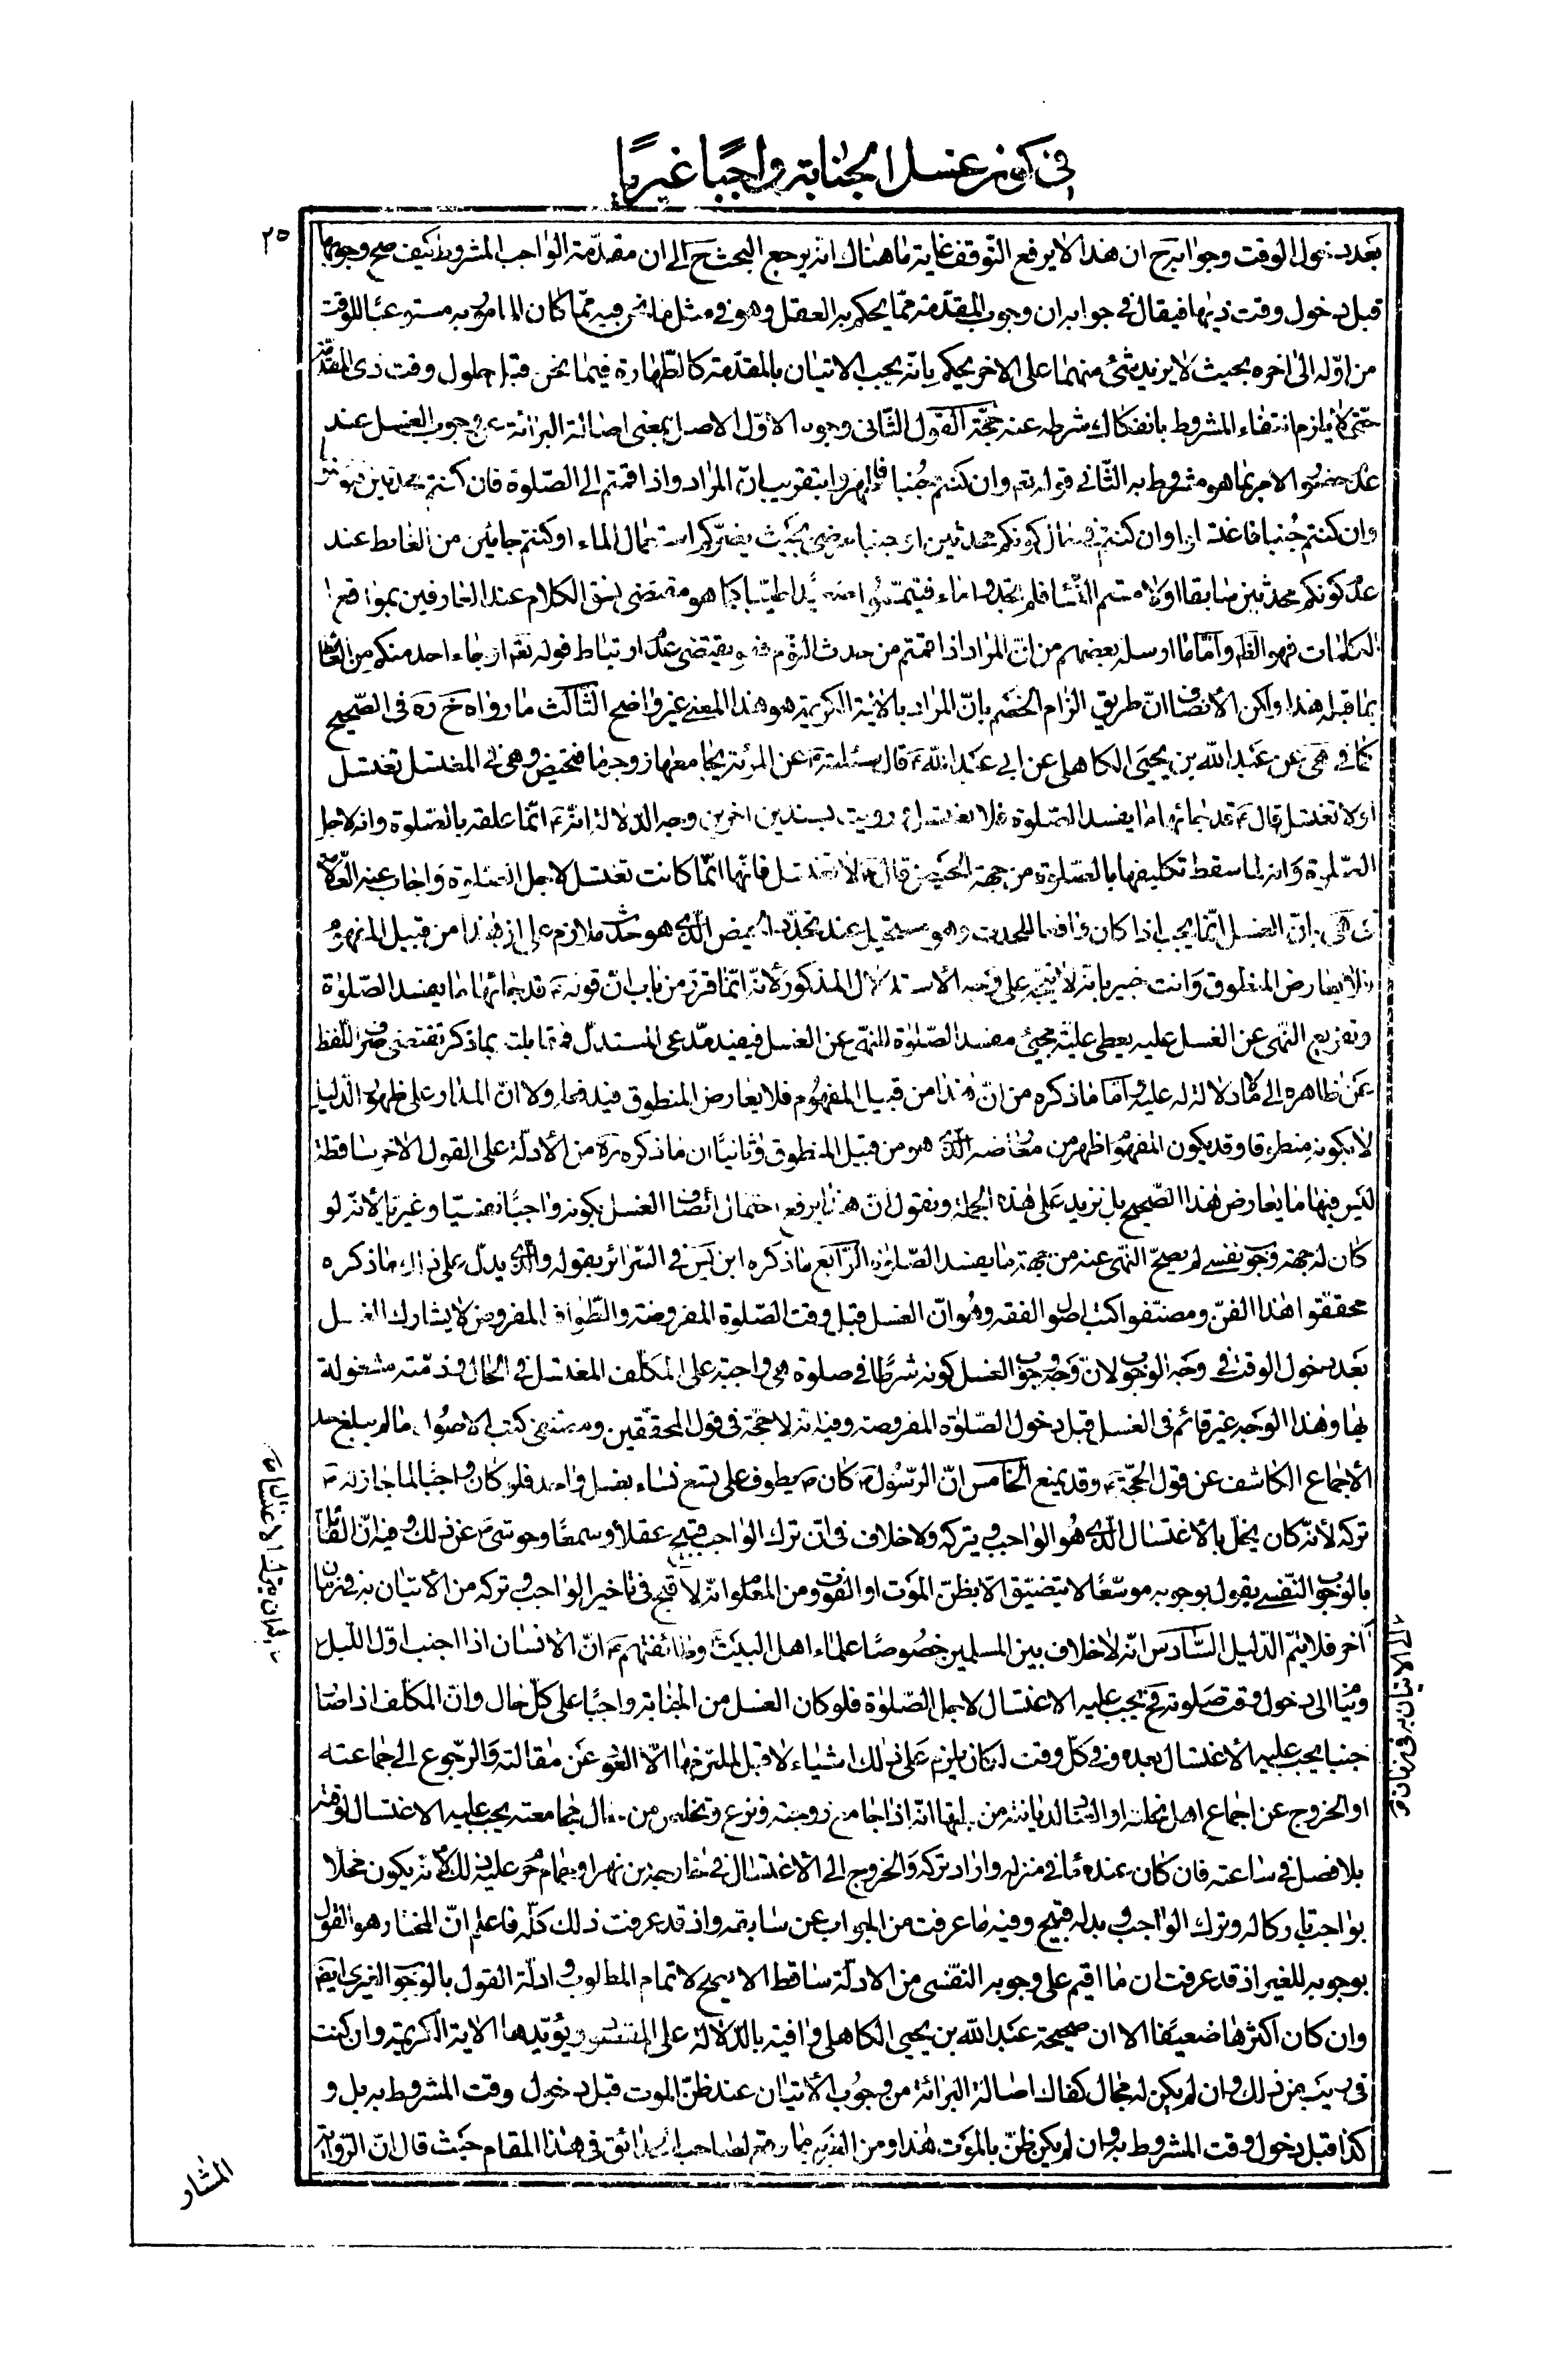 في كونه غسل الجنابة واجبًا غيريًا
٢٥
بعد دخول الوقت وجوابه ح ان هذا لا يرفع التوقف غاية ما هناك انه يرجع البحث ح الى ان مقدمة الواجب المشروط كيف صح وجوبها
قبل دخول وقت ذيها فيقال في جوابه ان وجوب المقدمة مما يحكم به العقل وهو في مثل ما نحن فيه مما كان المامور به مستوعبا للوقت
من اوله الى اخره بحيث لا يزيد شئ منهما على الاخر يحكم بانه يجب الاتيان بالمقدمة كالطهارة فيما نحن قبل حلول وقت ذى المقدمة
حتى لا يلزم انتفاء المشروط بانفكاك شرطه عنه حجة القول الثانى وجوه الاول الاصل بمعنى اصالة البرائة عن وجوب الغسل عند
عدم حضور الامر بما هو مشروط به الثانى قوله تعه وان كنتم جنبا فاطهروا بتقريب ان المراد واذا قمتم الى الصلوة فان كنتم محدثين فتوضئوا
وان كنتم جنبا فاغتسلوا وان كنتم في حال كونكم محدثين او جنبا مرضى بحيث يضركم استعمال الماء او كنتم جائين من الغائط عند
عدم كونكم محدثين سابقا او لامستم النساء فلم تجدوا ماء فتيمموا صعيدا طيبا كما هو مقتضى نسق الكلام عند العارفين بمواقع
الكلمات فهو الظاهر واما ما ارسله بعضهم من ان المراد اذا قمتم من حدث النوم فهو يقتضى عدم ارتباط قوله تعه او جاء احد منكم من الغائط
بما قبله هذا ولكن الانصاف ان طريق الزام الخصم بان المراد بالاية الكريمة هو هذا المعنى غير واضح الثالث ما رواه خ ره فى الصحيح
كما في هى عن عبد الله بن يحيى الكاهلى عن ابى عبد الله ع قال سئلته عن المرئة يجامعها زوجها فتحيض وهى في المغتسل تغتسل
او لا تغتسل قال ع قد جائها ما يفسد الصلوة فلا تغتسل ورويت بسندين اخرين وجه الدلالة انه ع انما علقه بالصلوة وانه لاجل
الصلوة وانه لما سقط تكليفها بالصلوة من جهة الحيض قال ع لا تغتسل فانها انما كانت تغتسل لاجل الصلوة واجاب عنه العلامة
في هى بان الغسل انما يجب اذا كان رافعا للحدث وهو مستحيل عند تجدد الحيض الذى هو حدث ملازم على ان هذا من قبيل المفهوم
فلا يعارض المنطوق وانت خبير بانه لا يتجه على وجه الاستدلال المذكور لانه انما قرر من باب ان قوله ع قد جائها ما يفسد الصلوة
وتفريع النهى عن الغسل عليه يعطى علية مجيئ مفسد الصلوة للنهى عن الغسل فيفيد مدعى المستدل فمقابلته بما ذكر تقتضى صرف اللفظ
عن ظاهره الى ما لا دلالة له عليه واما ما ذكره من ان هذا من قبيل المفهوم فلا يعارض المنطوق فيدفعه اولا ان المدار على ظهور الدليل
لا بكونه منطوقا وقد يكون المفهوم اظهر من معارضه الذى هو من قبيل المنطوق وثانيًا ان ما ذكره ره من الادلة على القول الاخر ساقطة
ليس فيها ما يعارض هذا الصحيح بل نزيد على هذه الجملة ونقول ان هذا يرفع احتمال اتصاف الغسل بكونه واجبًا نفسيا وغيريا لانه لو
كان له جهة وجوب نفسى لم يصح النهى عنه من جهة ما يفسد الصلوة الرابع ما ذكره ابن إدريس في السرائر بقوله والذى يدل على ذلك ما ذكره
محققوا هذا الفن ومصنفوا كتب اصول الفقه وهو ان الغسل قبل وقت الصلوة المفروضة والطواف المفروض لا يشارك الغسل
بعد دخول الوقت في وجه الوجوب لان وجه وجوب الغسل كونه شرطا في صلوة هى واجبة على المكلف المغتسل في الحال وذمته مشغولة
بها وهذا الوجه غير قائم فى الغسل قبل دخول الصلوة المفروضة وفيه انه لا حجة في قول المحققين ومصنفى كتب الاصول ما لم يبلغ حد
الاجماع الكاشف عن قول الحجة ع وقد يمنع الخامس ان الرسول ص كان ص يطوف على تسع نساء بغسل واحد فلو كان واجبًا لما جاز له ص
تركه لانه كان يخل بالاغتسال الذى هو الواجب ويتركه ولا خلاف في ان ترك الواجب قبيح عقلا وسمعًا وحوشى ع عن ذلك وفيه ان القائل
بالوجوب النفسى يقول بوجوبه موسعًا لا يتضيق الا بظن الموت او الفوت ومن المعلوم انه لا قبح في تاخير الواجب وتركه من الاتيان به في زمان
آخر فلا يتم الدليل السادس انه لا خلاف بين المسلمين خصوصًا علماء اهل البيت وطائفتهم ع ان الانسان اذا اجنب اول الليل
ونام الى دخول وقت صلوته ح يجب عليه الاغتسال لاجل الصلوة فلو كان الغسل من الجنابة واجبًا على كل حال وان المكلف اذا صار
جنبا يجب عليه الاغتسال بعده وفي كل وقت لكان يلزم على ذلك اشياء لا قبل لملتزمها الا العود عن مقالته والرجوع الى جماعته
او الخروج عن اجماع اهل نحلته او المتالديانته من جملتها انه اذا جامع زوجته ونزع وتخلص من حال جماعته يجب عليه الاغتسال لوقته
بلا فصل في ساعته فان كان عنده ماء في منزله واراد تركه والخروج الى الاغتسال في خارجه من نهر او حمام محرم عليه ذلك لانه يكون مخلا
بواجب تاركا له وترك الواجب وبدله قبيح وفيه ما عرفت من الجواب عن سابقه واذ قد عرفت ذلك كله فاعلم ان المختار هو القول
بوجوبه للغير اذ قد عرفت ان ما اقيم على وجوبه النفسى من الادلة ساقطة لا يصح لاتمام المطلوب وادلة القول بالوجوب الغيرى ايضا
وان كان اكثرها ضعيفا الا ان صحيحة عبد الله بن يحيى الكاهلى وافية بالدلالة على المقصود ويؤيدها الاية الكريمة وان كنت
في ريب من ذلك وان لم يكن له مجال كفاك اصالة البرائة من وجوب الاتيان عند ظن الموت قبل دخول وقت المشروط به بل و
كذا قبل دخول وقت المشروط به وان لم يكن ظن بالموت هذا ومن الغريب ما وقع لصاحب الحدائق في هذا المقام حيث قال ان الرواية
المشار